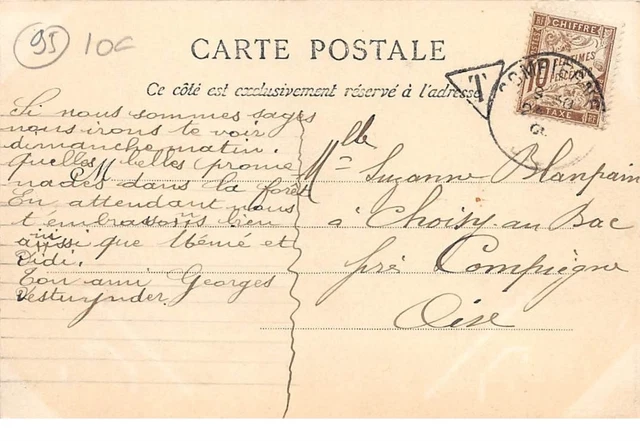 95 10€
CARTE POSTALE
Ce côté est exclusivement réservé à l'adresse
T
CHIFFRE
10
CENTIMES
TAXE
Si nous sommes sages
nous irons te voir
dimanche matin.
quelles belles prome
nades dans la forêt
En attendant nous
t'embrassons bien
ainsi que Mémé et
Didi.
Ton ami Georges
Mlle Suzanne Blanpain
à Choisy-au Bac
pré Compiègne
Oise